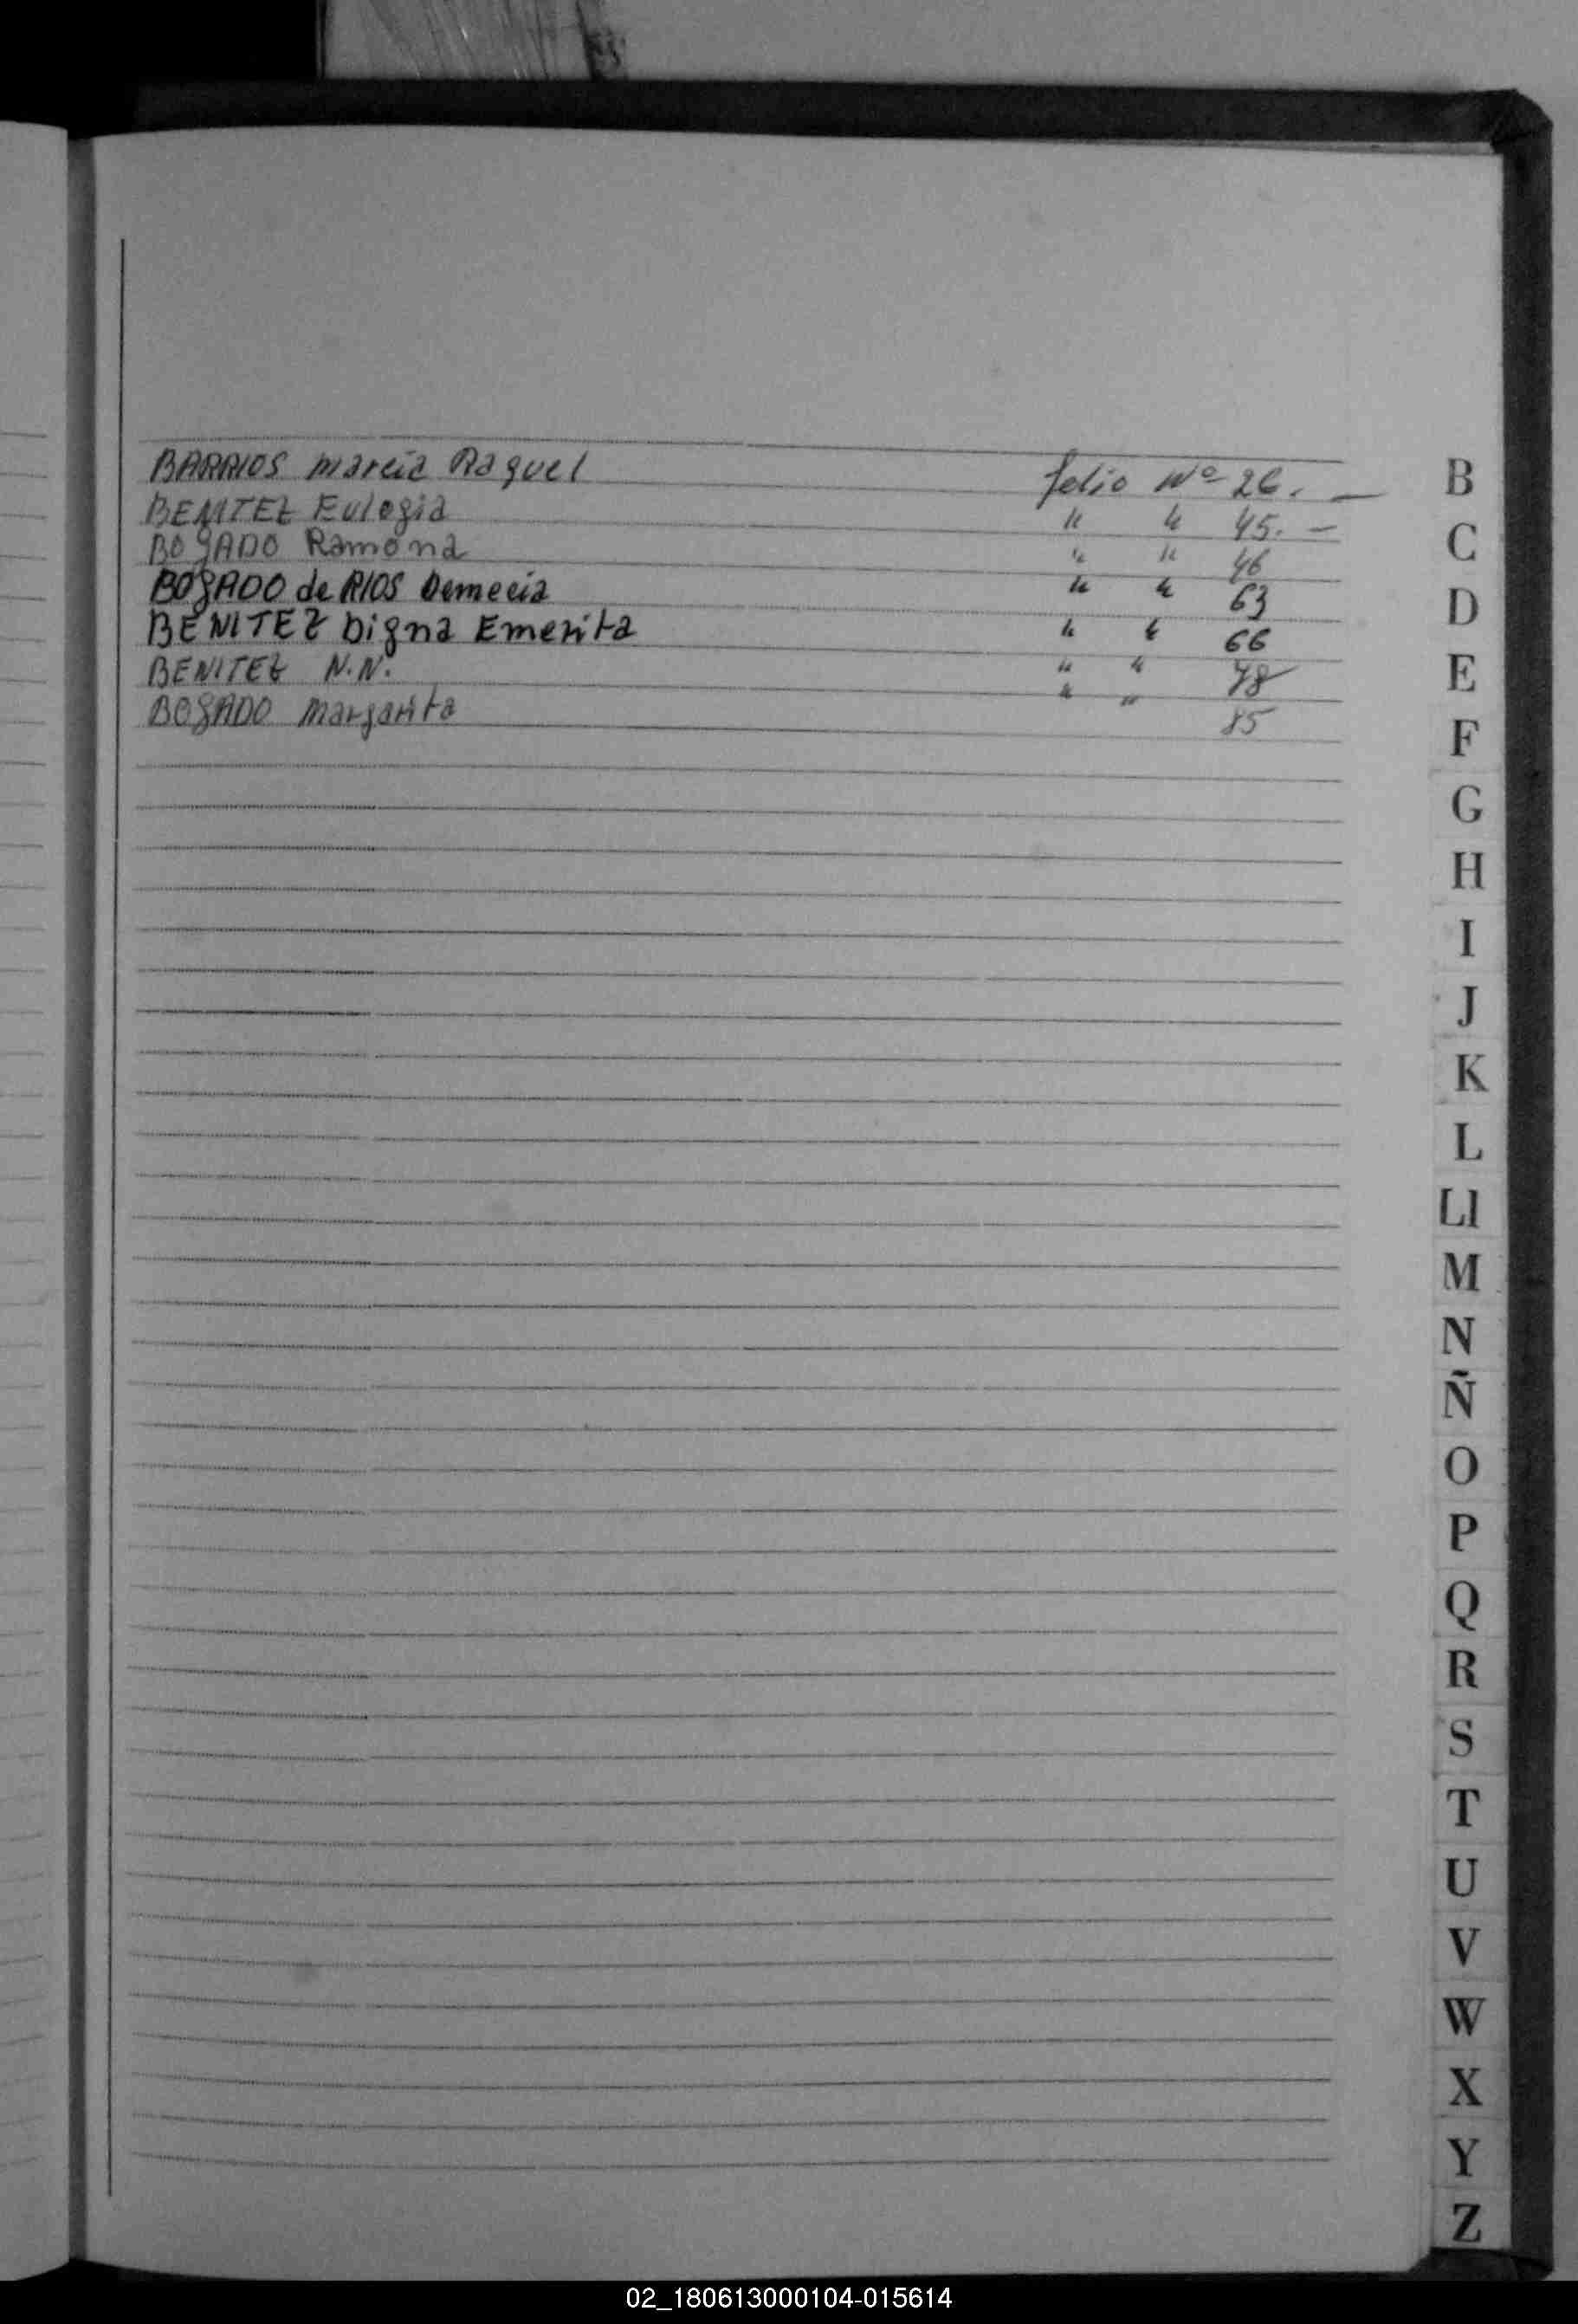 BARRIOS Marcia Raquel folio Nº 26. —
BENITEZ Eulogia " " 45. —
BOGADO Ramona " " 46
BOGADO de RIOS Demecia " " 63
BENITEZ Digna Emerita " " 66
BENITEZ N.N. " " 78
BOGADO Margarita " " 85
B
C
D
E
F
G
H
I
J
K
L
Ll
M
N
Ñ
O
P
Q
R
S
T
U
V
W
X
Y
Z
02_180613000104-015614